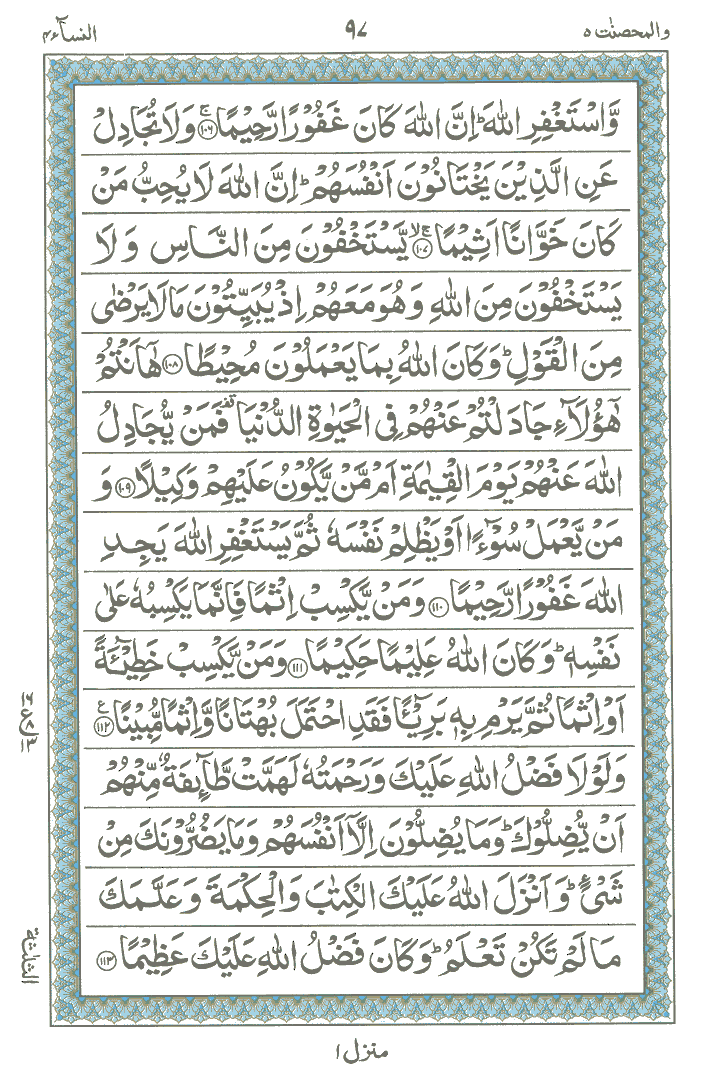 والمحصنٰت ٥
٩٧
النسآء ٤
وَّاسْتَغْفِرِ اللّٰهَ ؕ اِنَّ اللّٰهَ كَانَ غَفُوْرًا رَّحِيْمًا ۚ﴿۱۰۶﴾ وَلَا تُجَادِلْ
عَنِ الَّذِيْنَ يَخْتَانُوْنَ اَنْفُسَهُمْ ؕ اِنَّ اللّٰهَ لَا يُحِبُّ مَنْ
كَانَ خَوَّانًا اَثِيْمًا ۚۙ﴿۱۰۷﴾ يَّسْتَخْفُوْنَ مِنَ النَّاسِ وَلَا
يَسْتَخْفُوْنَ مِنَ اللّٰهِ وَهُوَ مَعَهُمْ اِذْ يُبَيِّتُوْنَ مَا لَا يَرْضٰى
مِنَ الْقَوْلِ ؕ وَكَانَ اللّٰهُ بِمَا يَعْمَلُوْنَ مُحِيْطًا ﴿۱۰۸﴾ هٰۤاَنْتُمْ
هٰۤؤُلَآءِ جَادَلْتُمْ عَنْهُمْ فِى الْحَيٰوةِ الدُّنْيَا قف فَمَنْ يُّجَادِلُ
اللّٰهَ عَنْهُمْ يَوْمَ الْقِيٰمَةِ اَمْ مَّنْ يَّكُوْنُ عَلَيْهِمْ وَكِيْلًا ﴿۱۰۹﴾ وَ
مَنْ يَّعْمَلْ سُوْٓءًا اَوْ يَظْلِمْ نَفْسَهٗ ثُمَّ يَسْتَغْفِرِ اللّٰهَ يَجِدِ
اللّٰهَ غَفُوْرًا رَّحِيْمًا ﴿۱۱۰﴾ وَمَنْ يَّكْسِبْ اِثْمًا فَاِنَّمَا يَكْسِبُهٗ عَلٰى
نَفْسِهٖ ؕ وَكَانَ اللّٰهُ عَلِيْمًا حَكِيْمًا ﴿۱۱۱﴾ وَمَنْ يَّكْسِبْ خَطِيْٓئَةً
اَوْ اِثْمًا ثُمَّ يَرْمِ بِهٖ بَرِيْٓئًا فَقَدِ احْتَمَلَ بُهْتَانًا وَّاِثْمًا مُّبِيْنًا ﴿۱۱۲﴾ ع
وَلَوْلَا فَضْلُ اللّٰهِ عَلَيْكَ وَرَحْمَتُهٗ لَهَمَّتْ طَّآئِفَةٌ مِّنْهُمْ
اَنْ يُّضِلُّوْكَ ؕ وَمَا يُضِلُّوْنَ اِلَّاۤ اَنْفُسَهُمْ وَمَا يَضُرُّوْنَكَ مِنْ
شَىْءٍ ؕ وَاَنْزَلَ اللّٰهُ عَلَيْكَ الْكِتٰبَ وَالْحِكْمَةَ وَعَلَّمَكَ
مَا لَمْ تَكُنْ تَعْلَمُ ؕ وَكَانَ فَضْلُ اللّٰهِ عَلَيْكَ عَظِيْمًا ﴿۱۱۳﴾
الثلثة
منزل ١